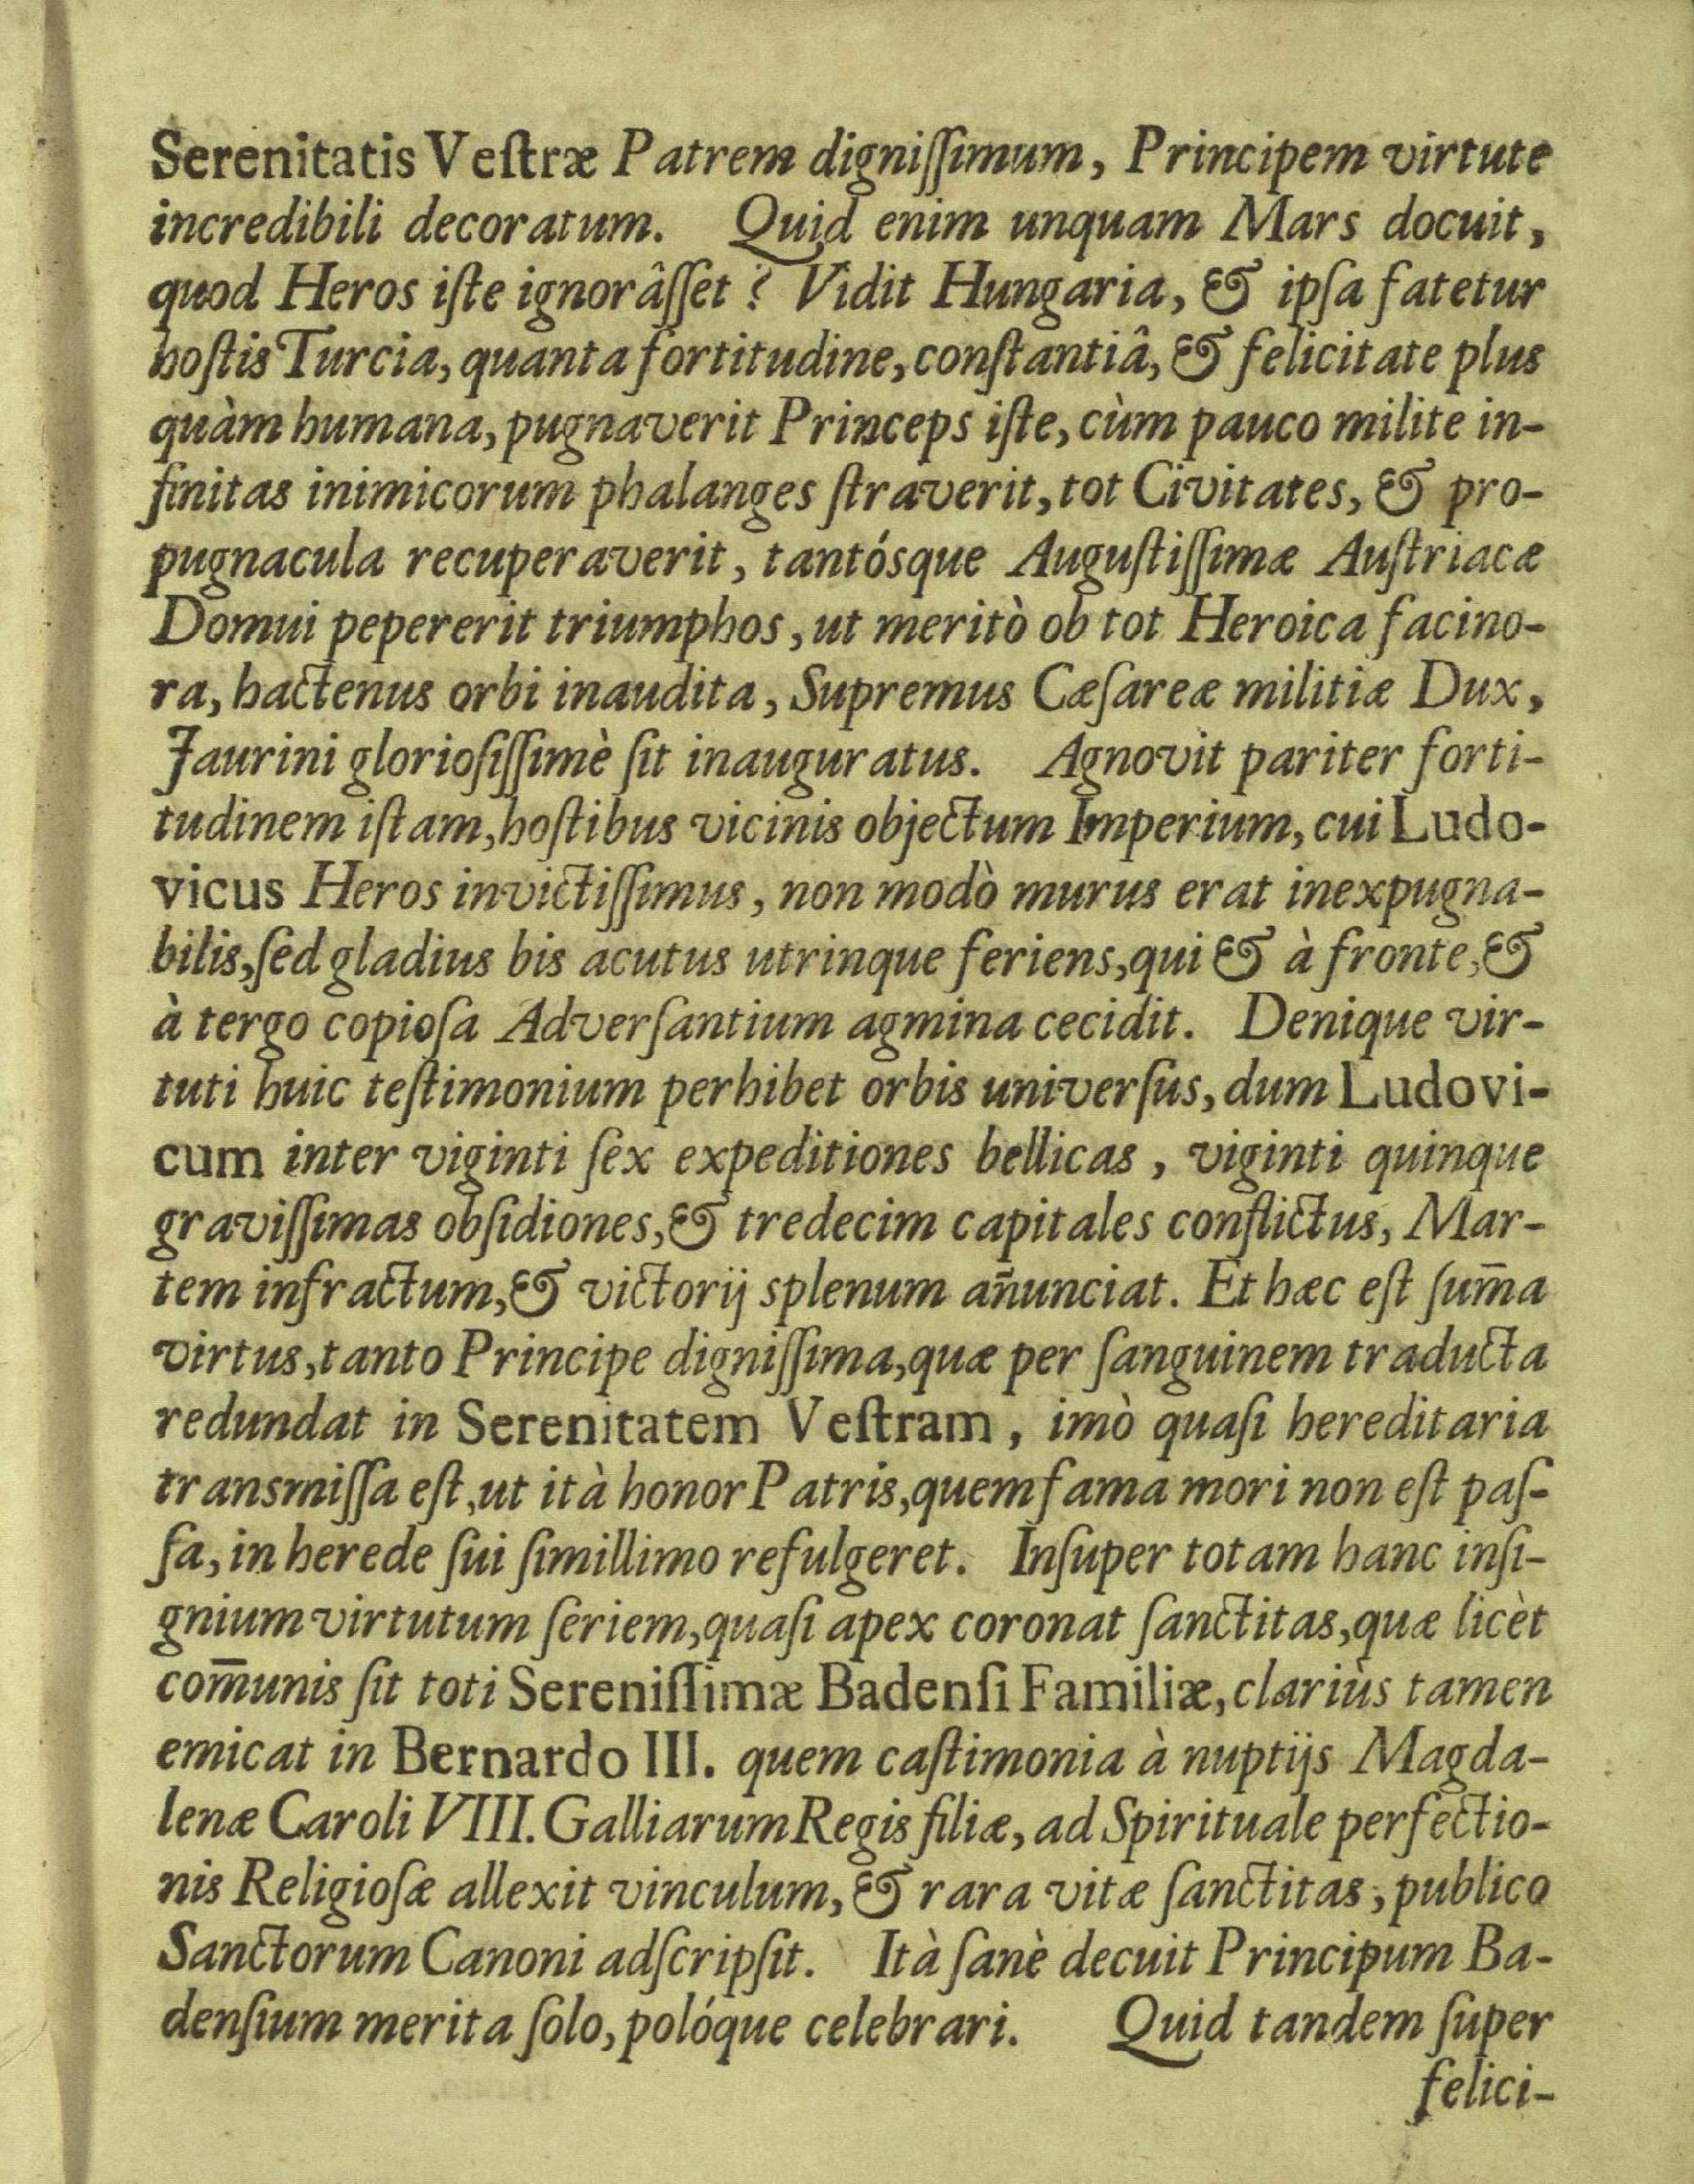 Serenitatis Veſtræ Patrem digniſſimum, Principem virtute
incredibili decoratum. Quid enim unquam Mars docuit,
quod Heros iſte ignorâſſet? Vidit Hungaria, & ipſa fatetur
hoſtis Turcia, quanta fortitudine, conſtantiâ, & felicitate plus
quàm humana, pugnaverit Princeps iſte, cùm pauco milite in-
finitas inimicorum phalanges ſtraverit, tot Civitates, & pro-
pugnacula recuperaverit, tantósque Auguſtiſſimæ Auſtriacæ
Domui pepererit triumphos, ut meritò ob tot Heroica facino-
ra, hactenus orbi inaudita, Supremus Cæſareæ militiæ Dux,
Jaurini glorioſiſſimè ſit inauguratus. Agnovit pariter forti-
tudinem iſtam, hoſtibus vicinis objectum Imperium, cui Ludo-
vicus Heros invictiſſimus, non modò murus erat inexpugna-
bilis, ſed gladius bis acutus utrinque feriens, qui & à fronte, &
à tergo copioſa Adverſantium agmina cecidit. Denique vir-
tuti huic teſtimonium perhibet orbis univerſus, dum Ludovi-
cum inter viginti ſex expeditiones bellicas, viginti quinque
graviſſimas obſidiones, & tredecim capitales conflictus, Mar-
tem infractum, & victorij splenum an̄unciat. Et hæc eſt ſum̄a
virtus, tanto Principe digniſſima, quæ per ſanguinem traducta
redundat in Serenitatem Veſtram, imò quaſi hereditaria
transmiſſa eſt, ut ità honor Patris, quem fama mori non eſt paſ-
ſa, in herede ſui ſimillimo refulgeret. Inſuper totam hanc inſi-
gnium virtutum ſeriem, quaſi apex coronat ſanctitas, quæ licèt
com̄unis ſit toti Sereniſſimæ Badenſi Familiæ, clariùs tamen
emicat in Bernardo III. quem caſtimonia à nuptijs Magda-
lenæ Caroli VIII. Galliarum Regis filiæ, ad Spirituale perfectio-
nis Religioſæ allexit vinculum, & rara vitæ ſanctitas, publico
Sanctorum Canoni adſcripſit. Ità ſanè decuit Principum Ba-
denſium merita ſolo, polóque celebrari. Quid tandem ſuper
felici-